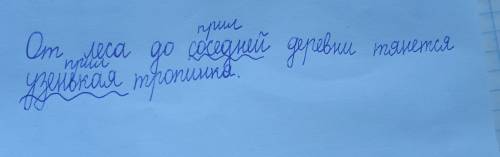 прил
От леса до соседней деревни тянется
прил
узенькая тропинка.